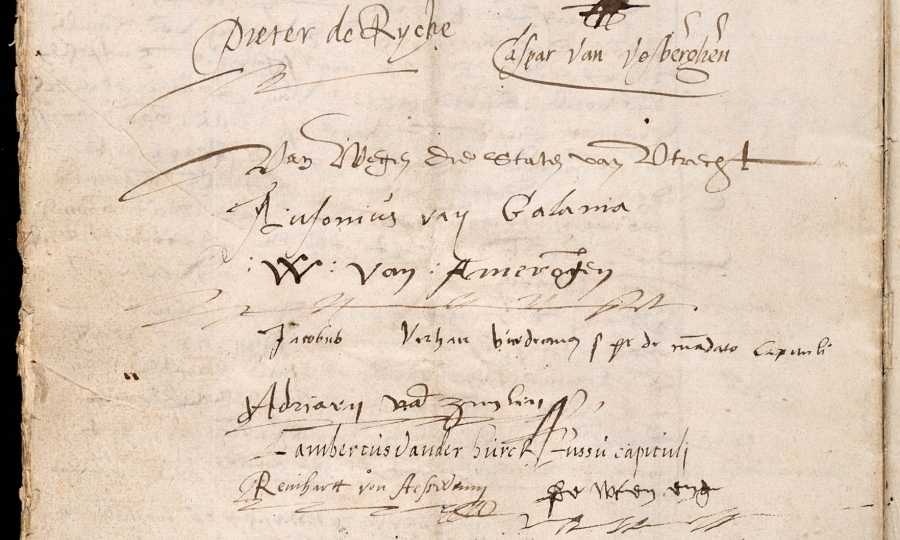 Pieter de Rycke
Caspar van vosberghen
Van Wegen die Staten van Vtrecht
Ausonius van Galama
W: van: Amerongen
Jacobus Verhar vicedecanus de mandato Capituli
Adriaen van Zuylen
Lambertus vander burch Jussu capituli
Reinhartt von Aeswinn